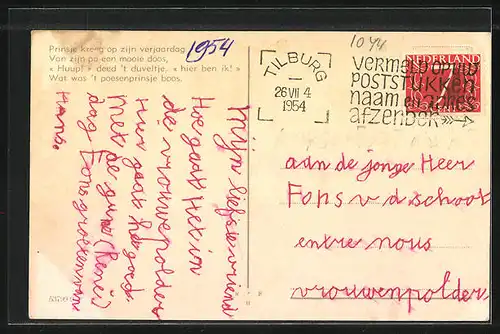 Prinsje kreeg op zijn verjaardag
Van zijn pa een mooie doos,
« Huup! » deed 't duveltje, « hier ben ik! »
Wat was 't poesenprinsje boos.
1954
1044
TILBURG
26 VII 4
1954
vermeld op uw
POSTSTUKKEN
naam en adres
afzender
NEDERLAND
Mijn liefste vriend
Hoe gaat Het in
die vrouwepolder
Hier gaat het goed
Met de
(René)
dag Fons groeten van
Hans.
aan de jonge Heer
Fons v d schoot
entre nous
vrouwenpolder